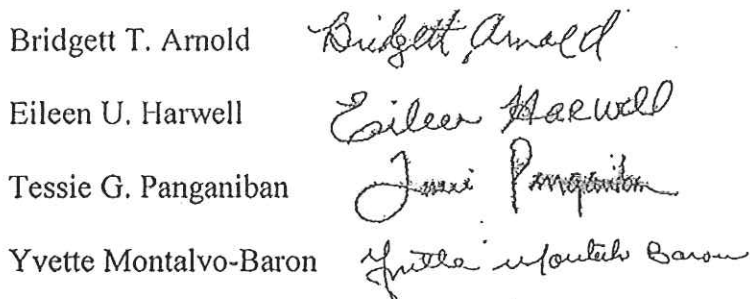 Bridgett T. Arnold Bridgett Arnold
Eileen U. Harwell Eileen Harwell
Tessie G. Panganiban Tessie Panganiban
Yvette Montalvo-Baron Yvette Montalvo Baron